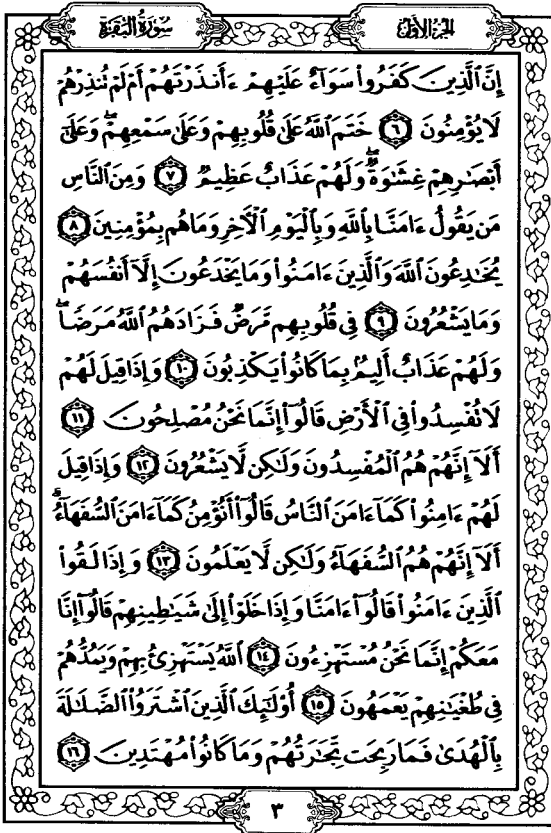 سُورَةُ الْبَقَرَةِ
الجُزْءُ الأَوَّلُ
إِنَّ ٱلَّذِينَ كَفَرُوا۟ سَوَآءٌ عَلَيْهِمْ ءَأَنذَرْتَهُمْ أَمْ لَمْ تُنذِرْهُمْ
لَا يُؤْمِنُونَ ٦ خَتَمَ ٱللَّهُ عَلَىٰ قُلُوبِهِمْ وَعَلَىٰ سَمْعِهِمْ ۖ وَعَلَىٰٓ
أَبْصَٰرِهِمْ غِشَٰوَةٌ ۖ وَلَهُمْ عَذَابٌ عَظِيمٌ ٧ وَمِنَ ٱلنَّاسِ
مَن يَقُولُ ءَامَنَّا بِٱللَّهِ وَبِٱلْيَوْمِ ٱلْأَخِرِ وَمَا هُم بِمُؤْمِنِينَ ٨
يُخَٰدِعُونَ ٱللَّهَ وَٱلَّذِينَ ءَامَنُوا۟ وَمَا يَخْدَعُونَ إِلَّآ أَنفُسَهُمْ
وَمَا يَشْعُرُونَ ٩ فِى قُلُوبِهِم مَّرَضٌ فَزَادَهُمُ ٱللَّهُ مَرَضًا ۖ
وَلَهُمْ عَذَابٌ أَلِيمٌۢ بِمَا كَانُوا۟ يَكْذِبُونَ ١٠ وَإِذَا قِيلَ لَهُمْ
لَا تُفْسِدُوا۟ فِى ٱلْأَرْضِ قَالُوٓا۟ إِنَّمَا نَحْنُ مُصْلِحُونَ ١١
أَلَآ إِنَّهُمْ هُمُ ٱلْمُفْسِدُونَ وَلَٰكِن لَّا يَشْعُرُونَ ١٢ وَإِذَا قِيلَ
لَهُمْ ءَامِنُوا۟ كَمَآ ءَامَنَ ٱلنَّاسُ قَالُوٓا۟ أَنُؤْمِنُ كَمَآ ءَامَنَ ٱلسُّفَهَآءُ ۗ
أَلَآ إِنَّهُمْ هُمُ ٱلسُّفَهَآءُ وَلَٰكِن لَّا يَعْلَمُونَ ١٣ وَإِذَا لَقُوا۟
ٱلَّذِينَ ءَامَنُوا۟ قَالُوٓا۟ ءَامَنَّا وَإِذَا خَلَوْا۟ إِلَىٰ شَيَٰطِينِهِمْ قَالُوٓا۟ إِنَّا
مَعَكُمْ إِنَّمَا نَحْنُ مُسْتَهْزِءُونَ ١٤ ٱللَّهُ يَسْتَهْزِئُ بِهِمْ وَيَمُدُّهُمْ
فِى طُغْيَٰنِهِمْ يَعْمَهُونَ ١٥ أُو۟لَٰٓئِكَ ٱلَّذِينَ ٱشْتَرَوُا۟ ٱلضَّلَٰلَةَ
بِٱلْهُدَىٰ فَمَا رَبِحَت تِّجَٰرَتُهُمْ وَمَا كَانُوا۟ مُهْتَدِينَ ١٦
٣